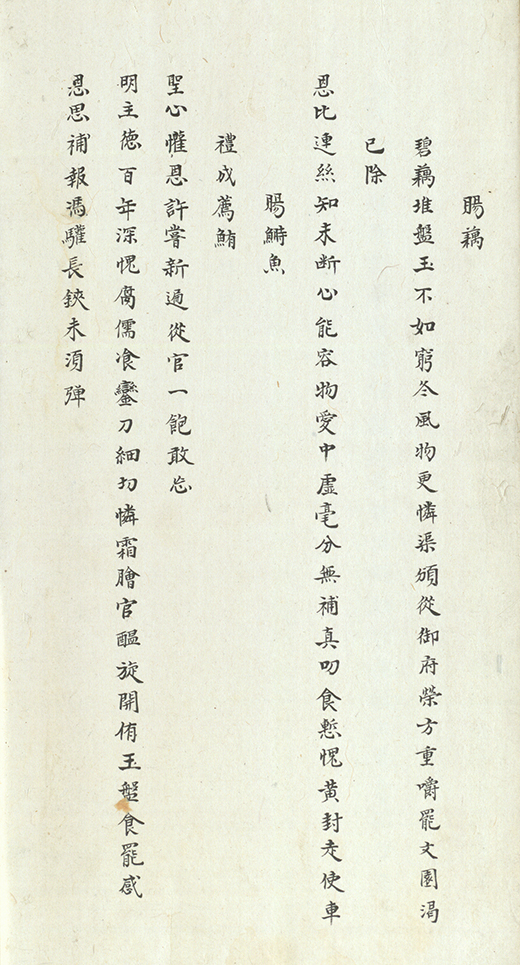 賜藕
碧藕堆盤玉不如窮冬風物更憐渠頒從御府榮方重嚼罷文園渴
已除
恩比連絲知未斷心能容物愛中虛毫分無補真叨食慙愧黃封走使車
賜鰣魚
禮成薦鮪
聖心懽恩許嘗新遍從官一飽敢忘
明主徳百年深愧腐儒飡鑾刀細切憐霜膾官醞旋開侑玉盤食罷感
恩思補報馮驩長鋏未須彈